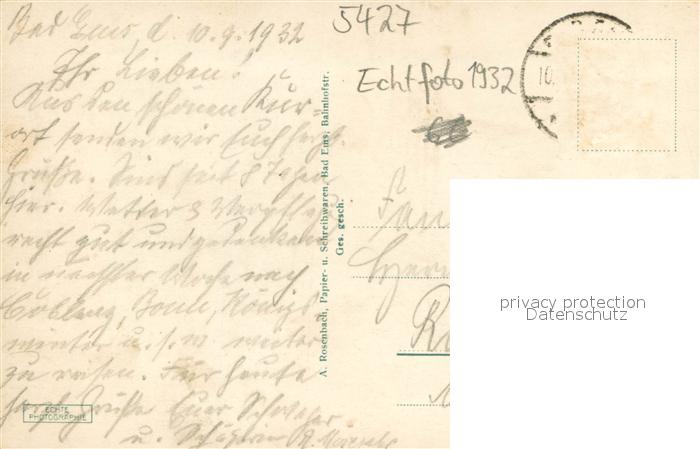 Bad Ems, d. 10.9.1932
Ihr Lieben!
Aus den schönen Kur-
ort senden wir Euch herzl.
Grüße. Sind seit 8 Tagen
hier. Wetter & Verpfleg
recht gut und gedenken
in nächster Woche nach
Coblenz, Bonn, Königs
winter u.s.w. weiter
zu reisen. Für heute
herzl. Grüße Euer Schwager
u. Schwägerin
ECHTE
PHOTOGRAPHIE
A. Rosenbach, Papier- u. Schreibwaren, Bad Ems, Bahnhofstr.
Ges. gesch.
5427
Echtfoto 1932
10.
privacy protection
Datenschutz